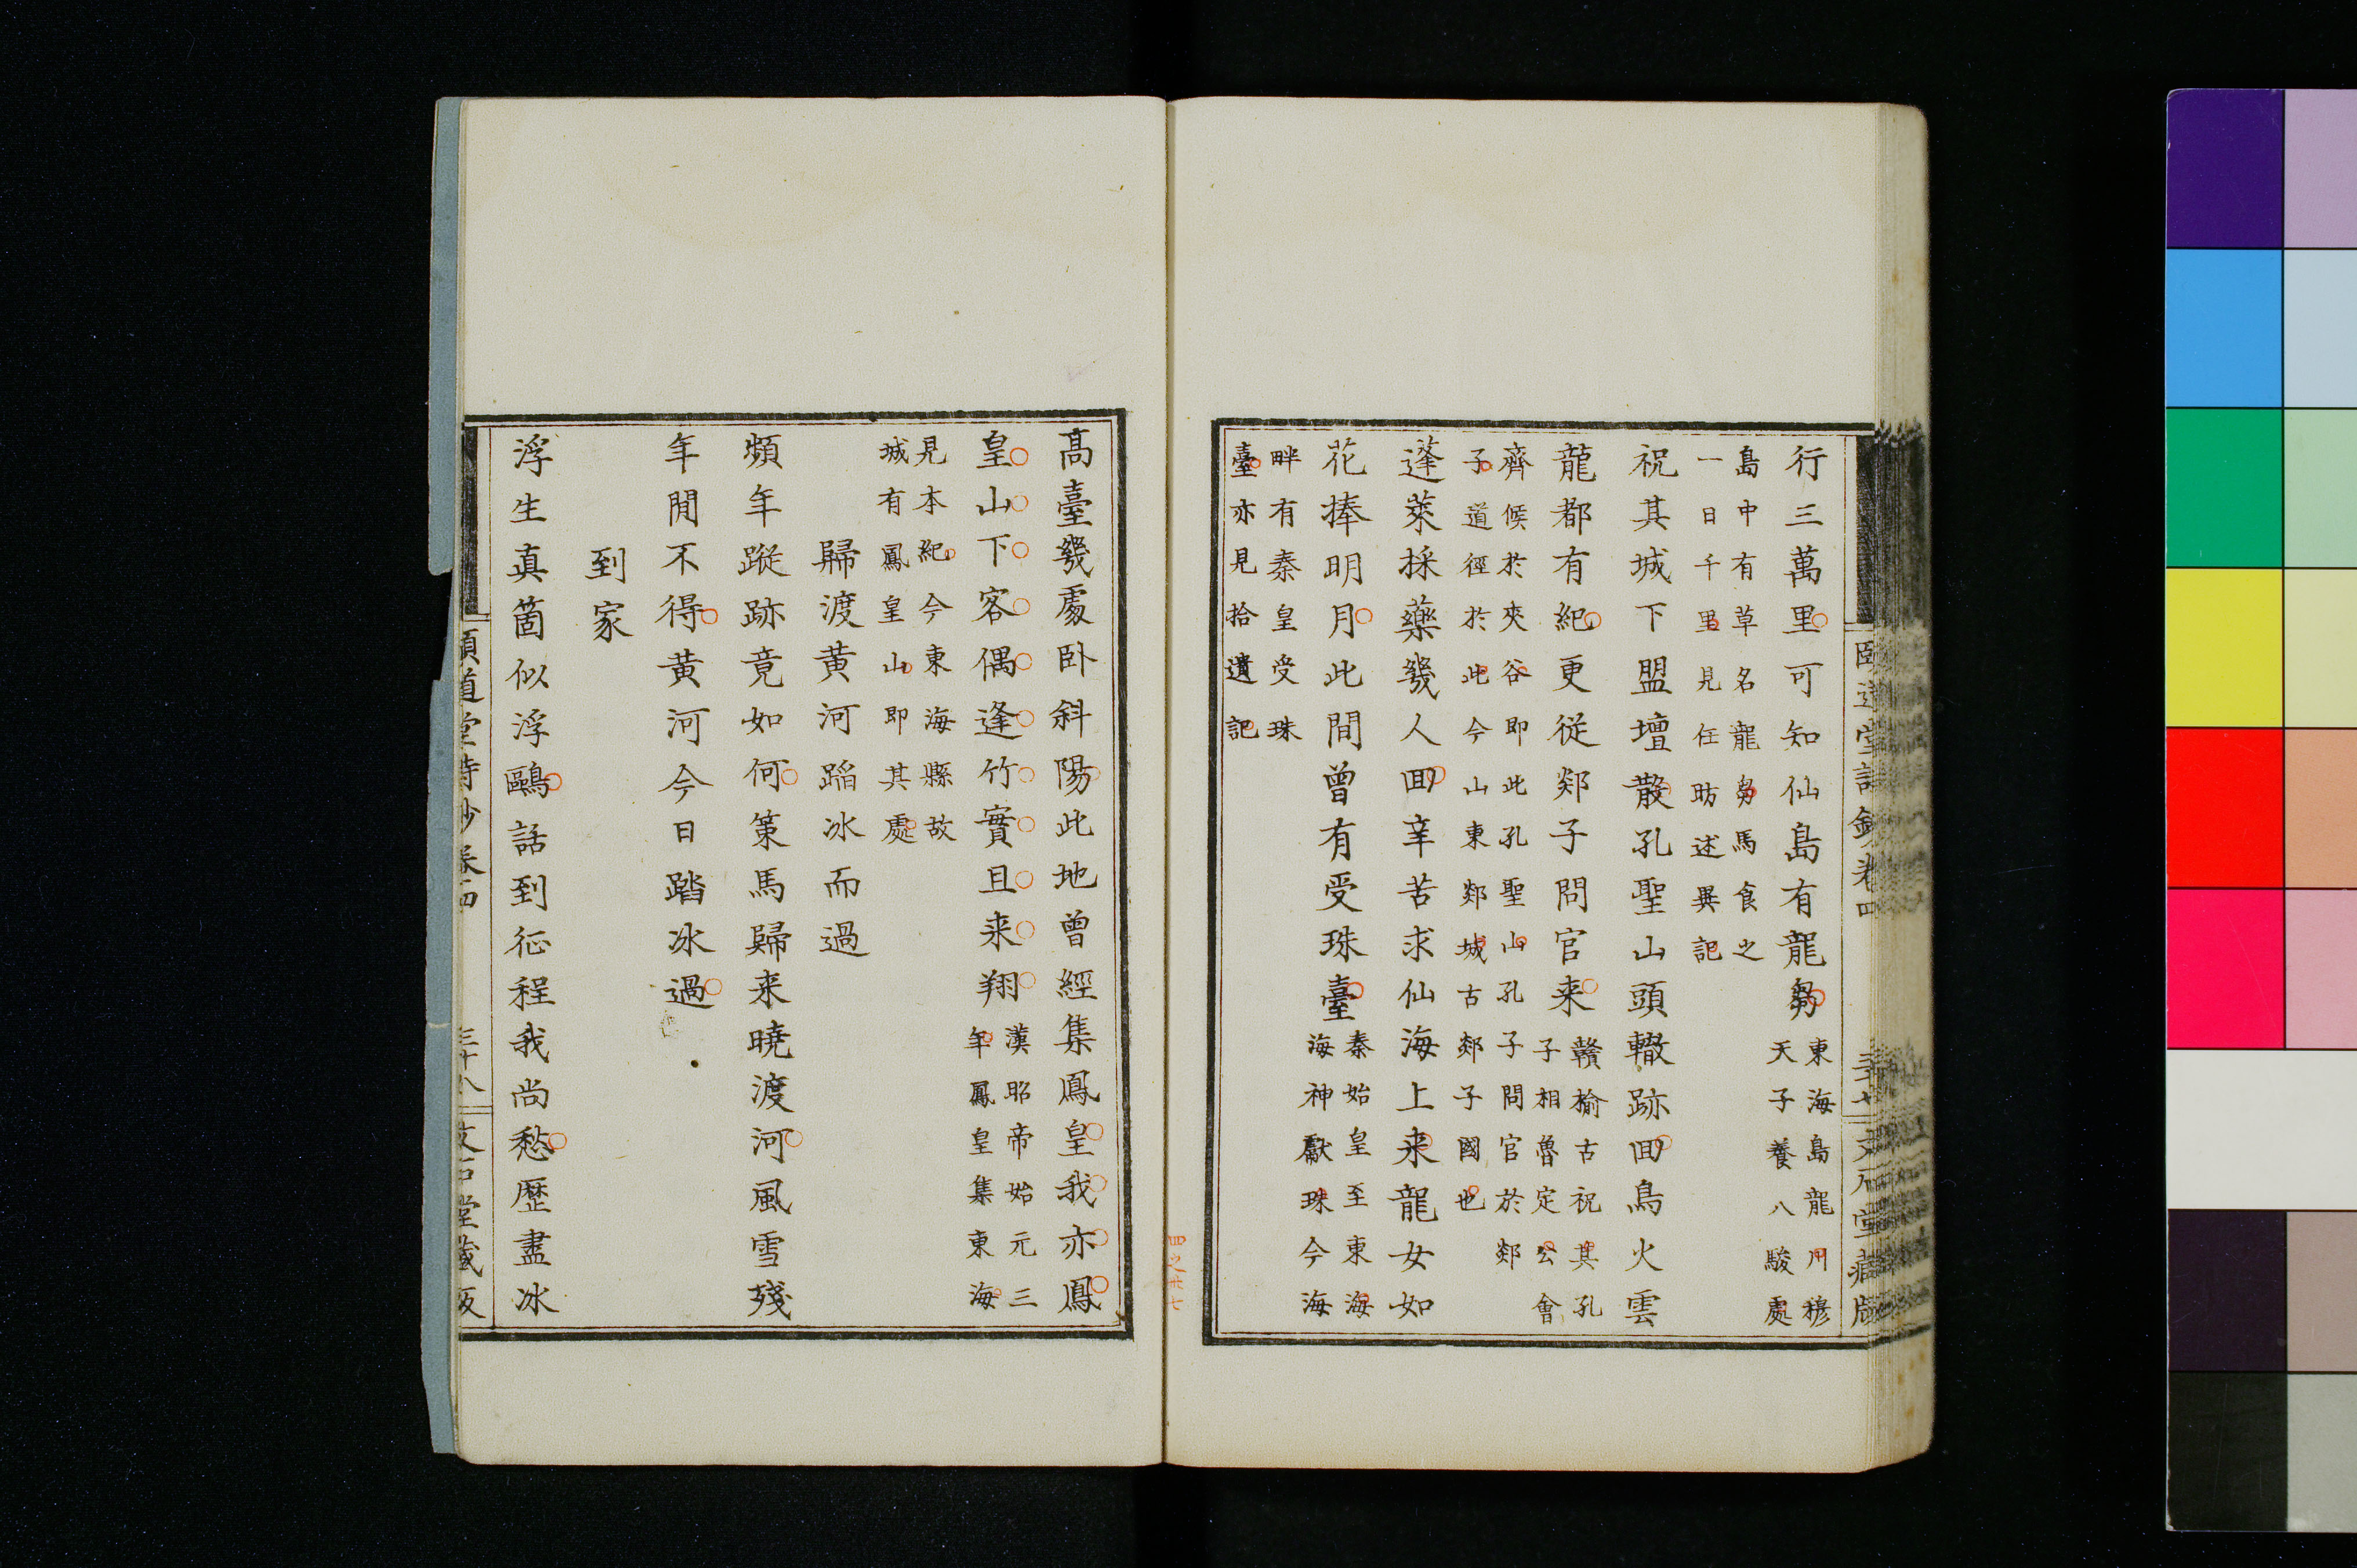 行三萬里可知仙島有龍芻東海島龍川穆
天子養八駿處
島中有草名龍芻馬食之
一日千里見任昉述異記
祝其城下盟壇散孔聖山頭轍跡回鳥火雲
龍都有紀更從郯子問官来贛榆古祝其孔
子相魯定公會
齊侯於夾谷即此孔聖山孔子問官於郯
子道徑於此今山東郯城古郯子國也
蓬萊採藥幾人回辛苦求仙海上来龍女如
花捧明月此間曾有受珠臺秦始皇至東海
海神獻珠今海
畔有秦皇受珠
臺亦見拾遺記
四之廿七
高臺幾處卧斜陽此地曾經集鳳皇我亦鳳
皇山下客偶逢竹實且来翔漢昭帝始元三
年鳳皇集東海
見本紀今東海縣故
城有鳳皇山即其處
歸渡黃河蹈冰而過
頻年蹤跡竟如何策馬歸来曉渡河風雪殘
年閒不得黃河今日踏冰過
到家
浮生真箇似浮鷗話到征程我尚愁歷盡冰
頤道堂詩鈔卷四 三十八 文石堂藏版